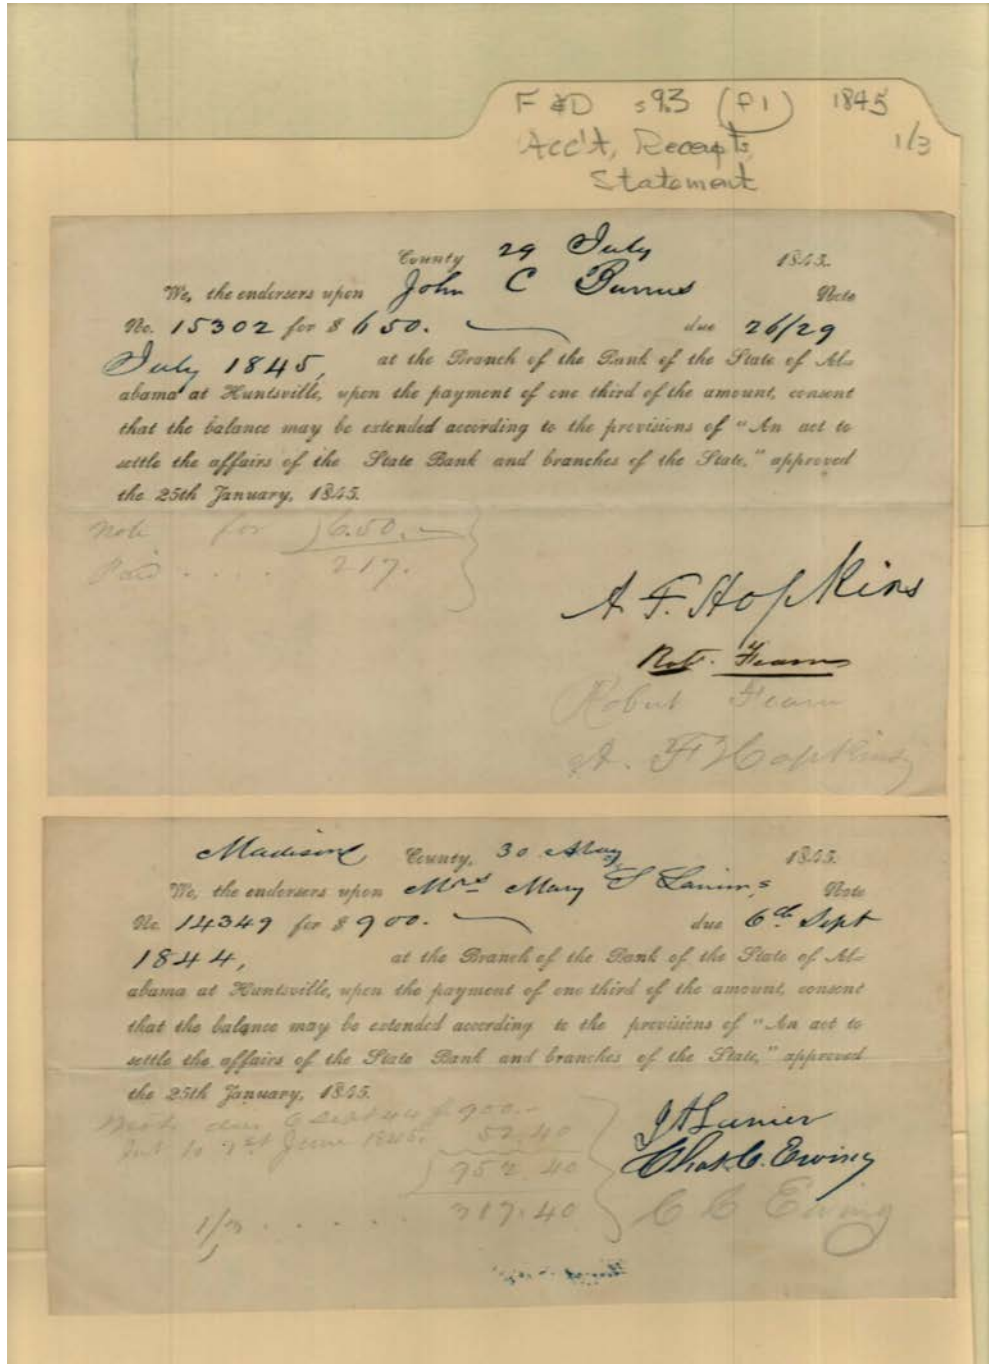 F &D s93 (P1) 1845
Acc't, Receipts, 1/3
Statement
County 29 July 1845.
We, the endorsers upon John C Burrus Note
No. 15302 for $ 650. due 26/29
July 1845, at the Branch of the Bank of the State of Al-
abama at Huntsville, upon the payment of one third of the amount, consent
that the balance may be extended according to the provisions of "An act to
settle the affairs of the State Bank and branches of the State," approved
the 25th January, 1845.
Note for 650.
Paid .... 217.
A F. Hopkins
Rob. Fearn
Robert Fearn
A. F Hopkins
Madison County, 30 May 1845.
We, the endorsers upon Mrs Mary S Laniers Note
No. 14349 for $ 900. due 6th Sept
1844, at the Branch of the Bank of the State of Al-
abama at Huntsville, upon the payment of one third of the amount, consent
that the balance may be extended according to the provisions of "An act to
settle the affairs of the State Bank and branches of the State," approved
the 25th January, 1845.
Note due 6 Sept 44 $ 900.-
Int to June 1845. 52.40
952.40
1/3 . . . . . 317.40
J A Lanier
Chas. C. Ewing
C C Ewing